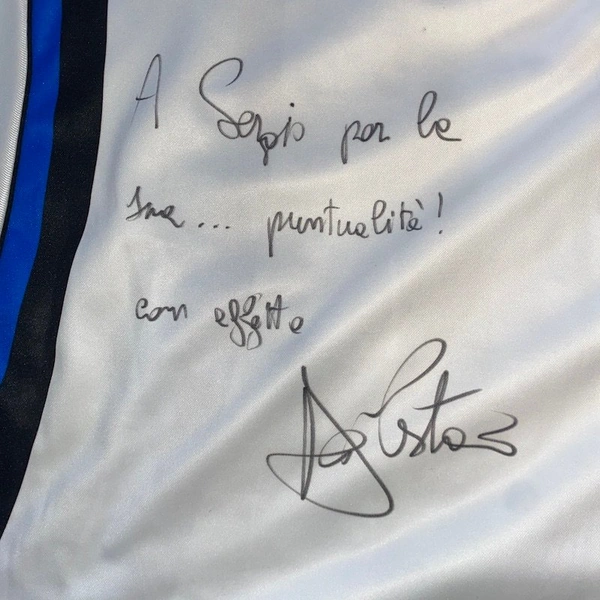 A Sergio per la
sua... puntualità!
con affetto